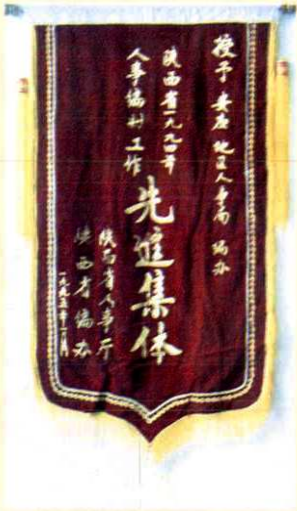 授予安康地区人事局 编办
陕西省一九九四年
人事编制工作
先进集体
陕西省人事厅
陕西省编办
一九九五年一月